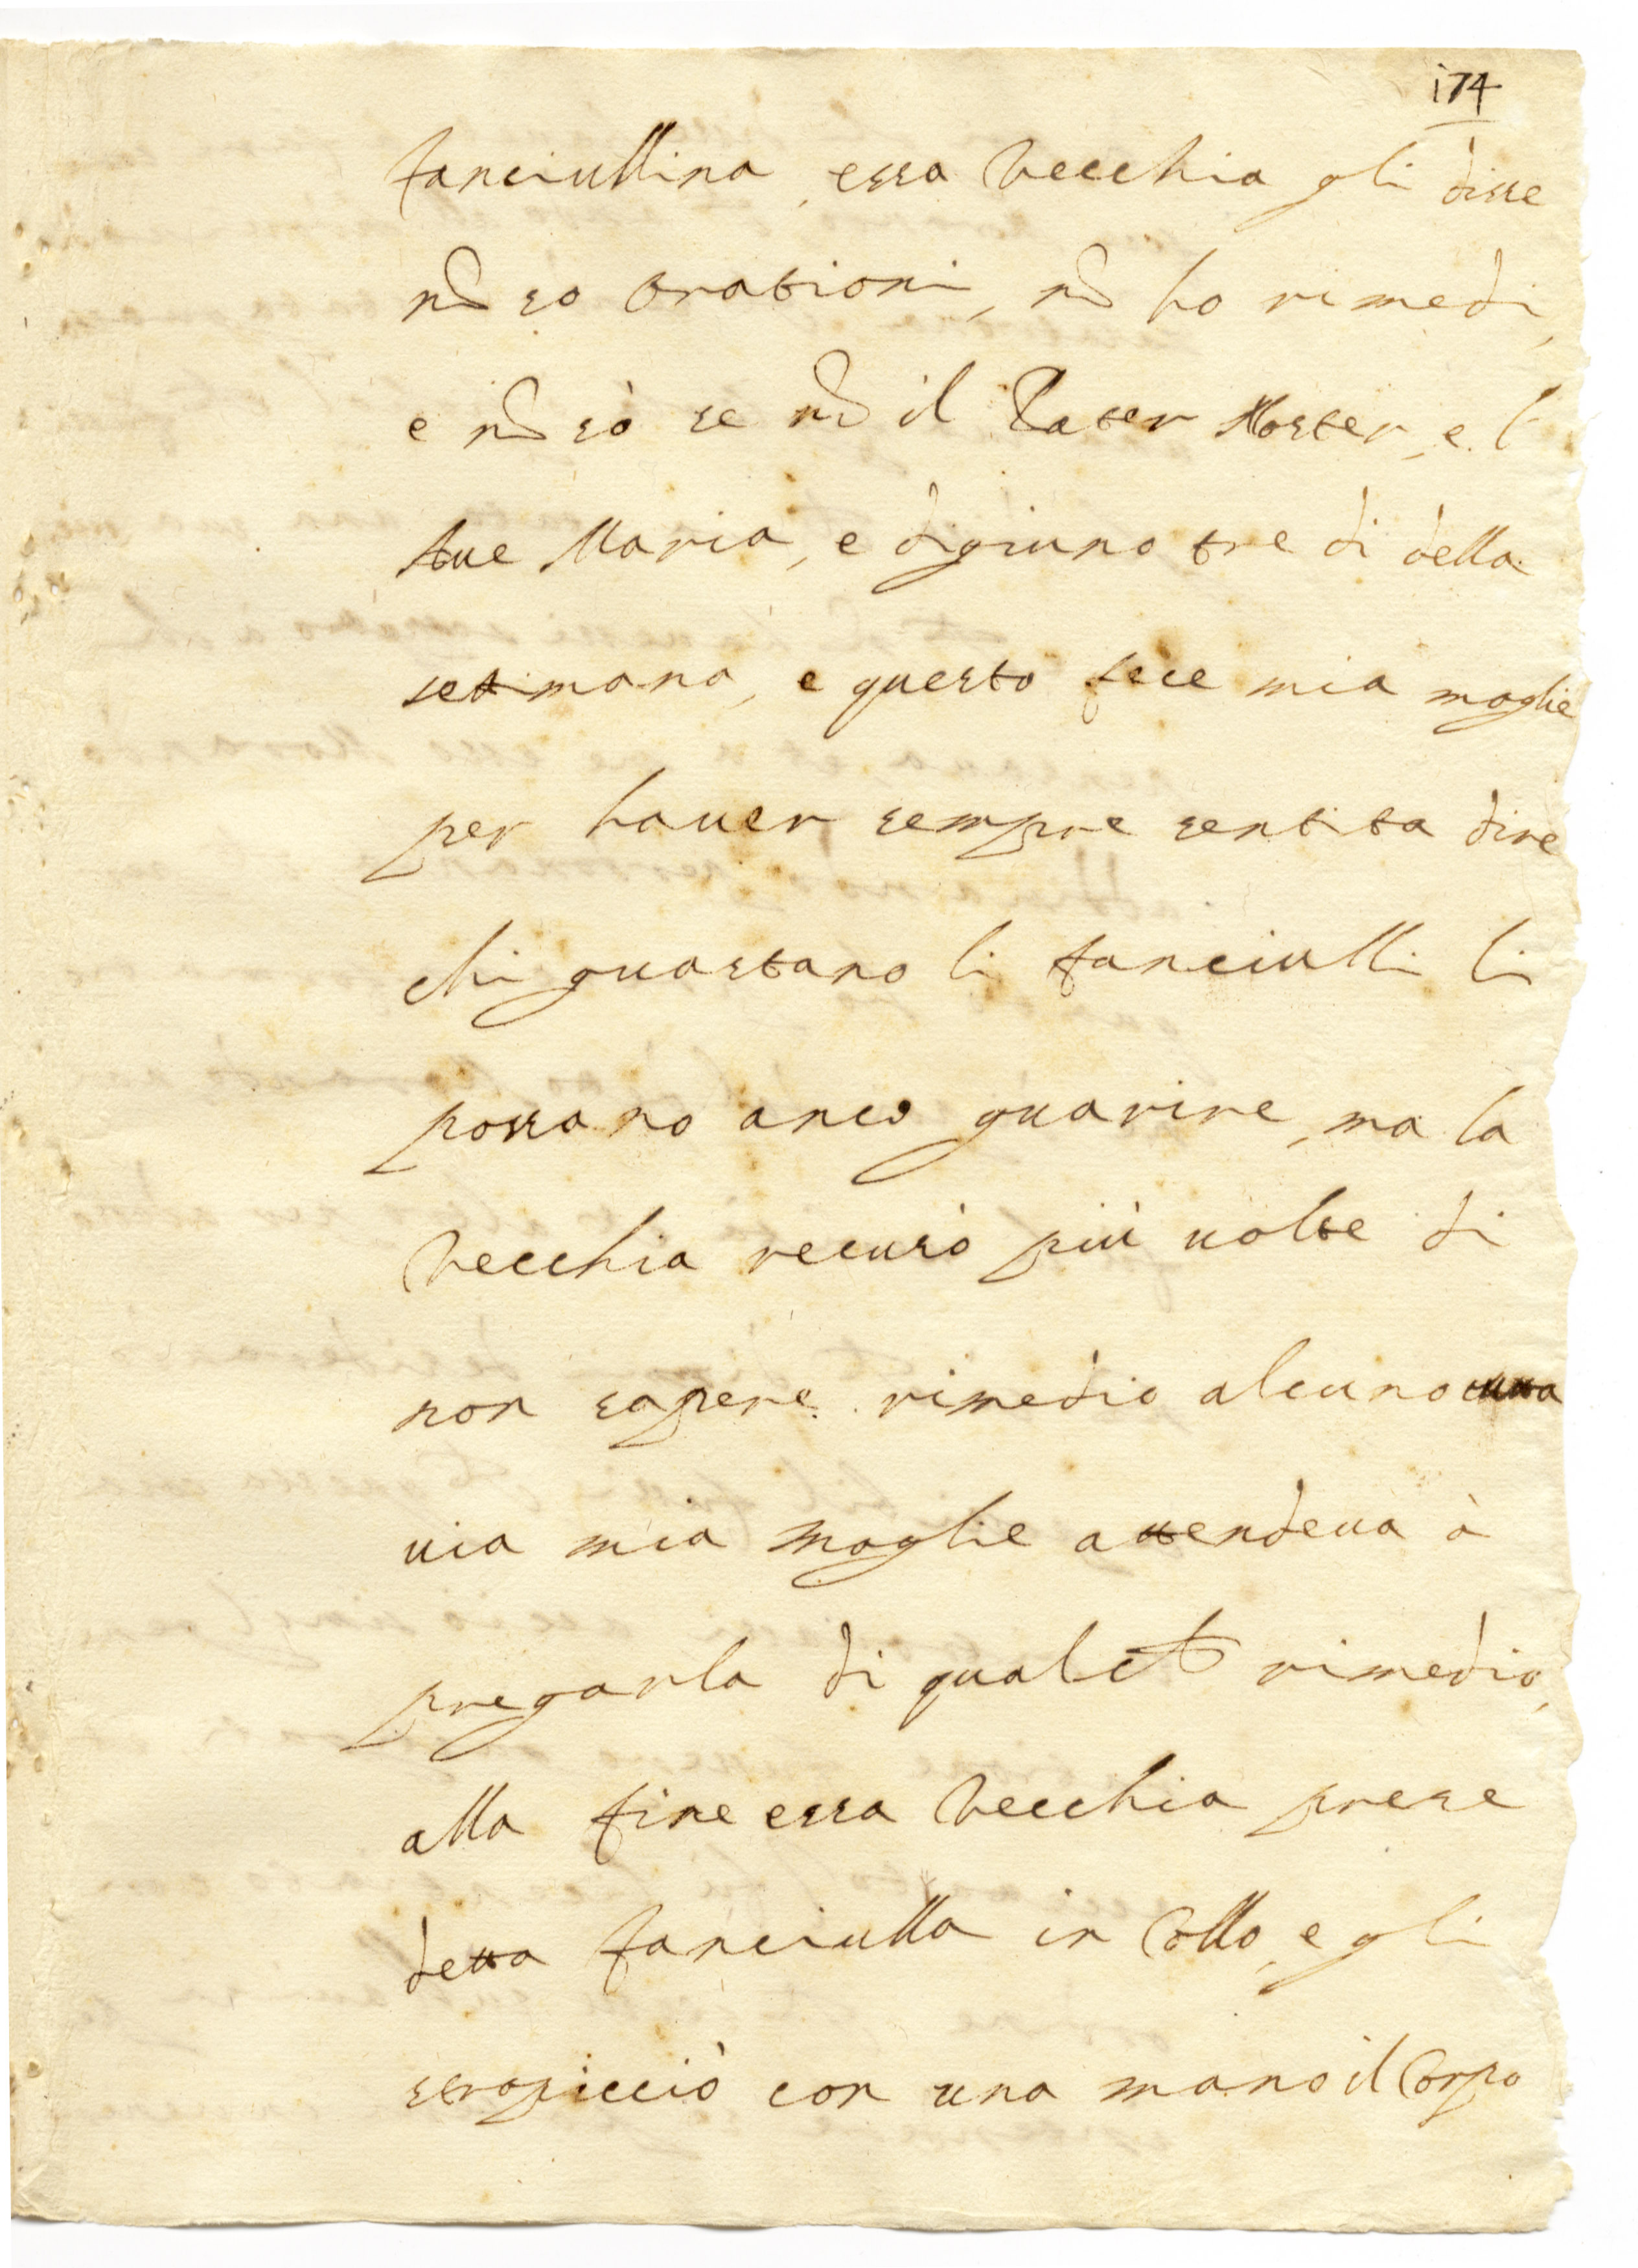 174
fanciullina, essa Vecchia gli disse
nō so orationi, nō ho rimedi,
e nō sò se nō il Pater Noster, e l'
Aue Maria, e digiuno tre di della
settimana, e questo fece mia moglie
per hauer sempre sentito dire
chi guastano li fanciulli li
possano anco guarire, ma la
Vecchia recusò più uolte di
non sapere rimedio alcuno tutta
uia mia moglie attendeua à
pregarla di qualche rimedio,
alla fine essa Vecchia prese
detta fanciulla in Collo, e gli
stropicciò con una mano il Corpo